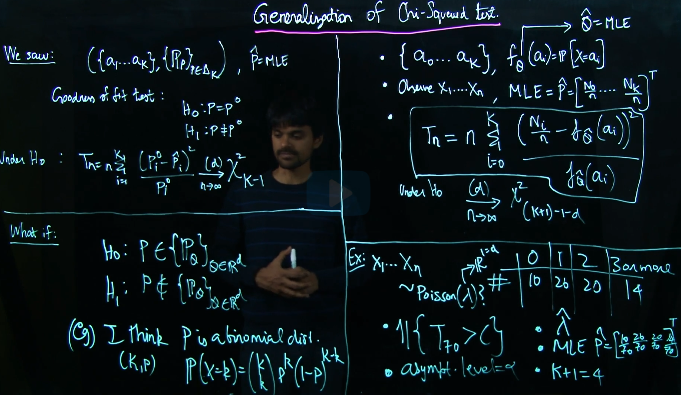 Generalization of Chi-Squared test.
We saw: ({a₁...a_K}, {ℙ_p}_{p∈Δ_K}), p̂=MLE
Goodness of fit test:
H₀: P=P⁰
H₁: P≠P⁰
Under H₀: Tₙ = n Σ_{i=1}^{K} (P_i⁰ - P̂_i)² / P_i⁰ →^{(d)}_{n→∞} χ²_{K-1}
What if:
H₀: P ∈ {ℙ_θ}_{θ∈ℝ^d}
H₁: P ∉ {ℙ_θ}_{θ∈ℝ^d}
(eg) I think P is a binomial dist.
(K,p) ℙ(X=k) = (K k) p^k (1-p)^{K-k}
θ̂ = MLE
• {a₀...a_K}, f_θ̂(a_i) = ℙ[X=a_i]
• Observe X₁...Xₙ, MLE = P̂ = [N₀/n ... N_K/n]^T
• Tₙ = n Σ_{i=0}^{K} (N_i/n - f_θ̂(a_i))² / f_θ̂(a_i)
Under H₀ →^{(d)}_{n→∞} χ²_{(K+1)-1-d}
Ex: X₁...Xₙ
~Poisson(λ)? ℝ^{1=d}
0 1 2 3 or more
# 10 26 20 14
• 𝟙{T₇₀ > C}
• asympt. level = α
• λ̂
• MLE P̂ = [10/70 26/70 20/70 14/70]^T
• K+1=4